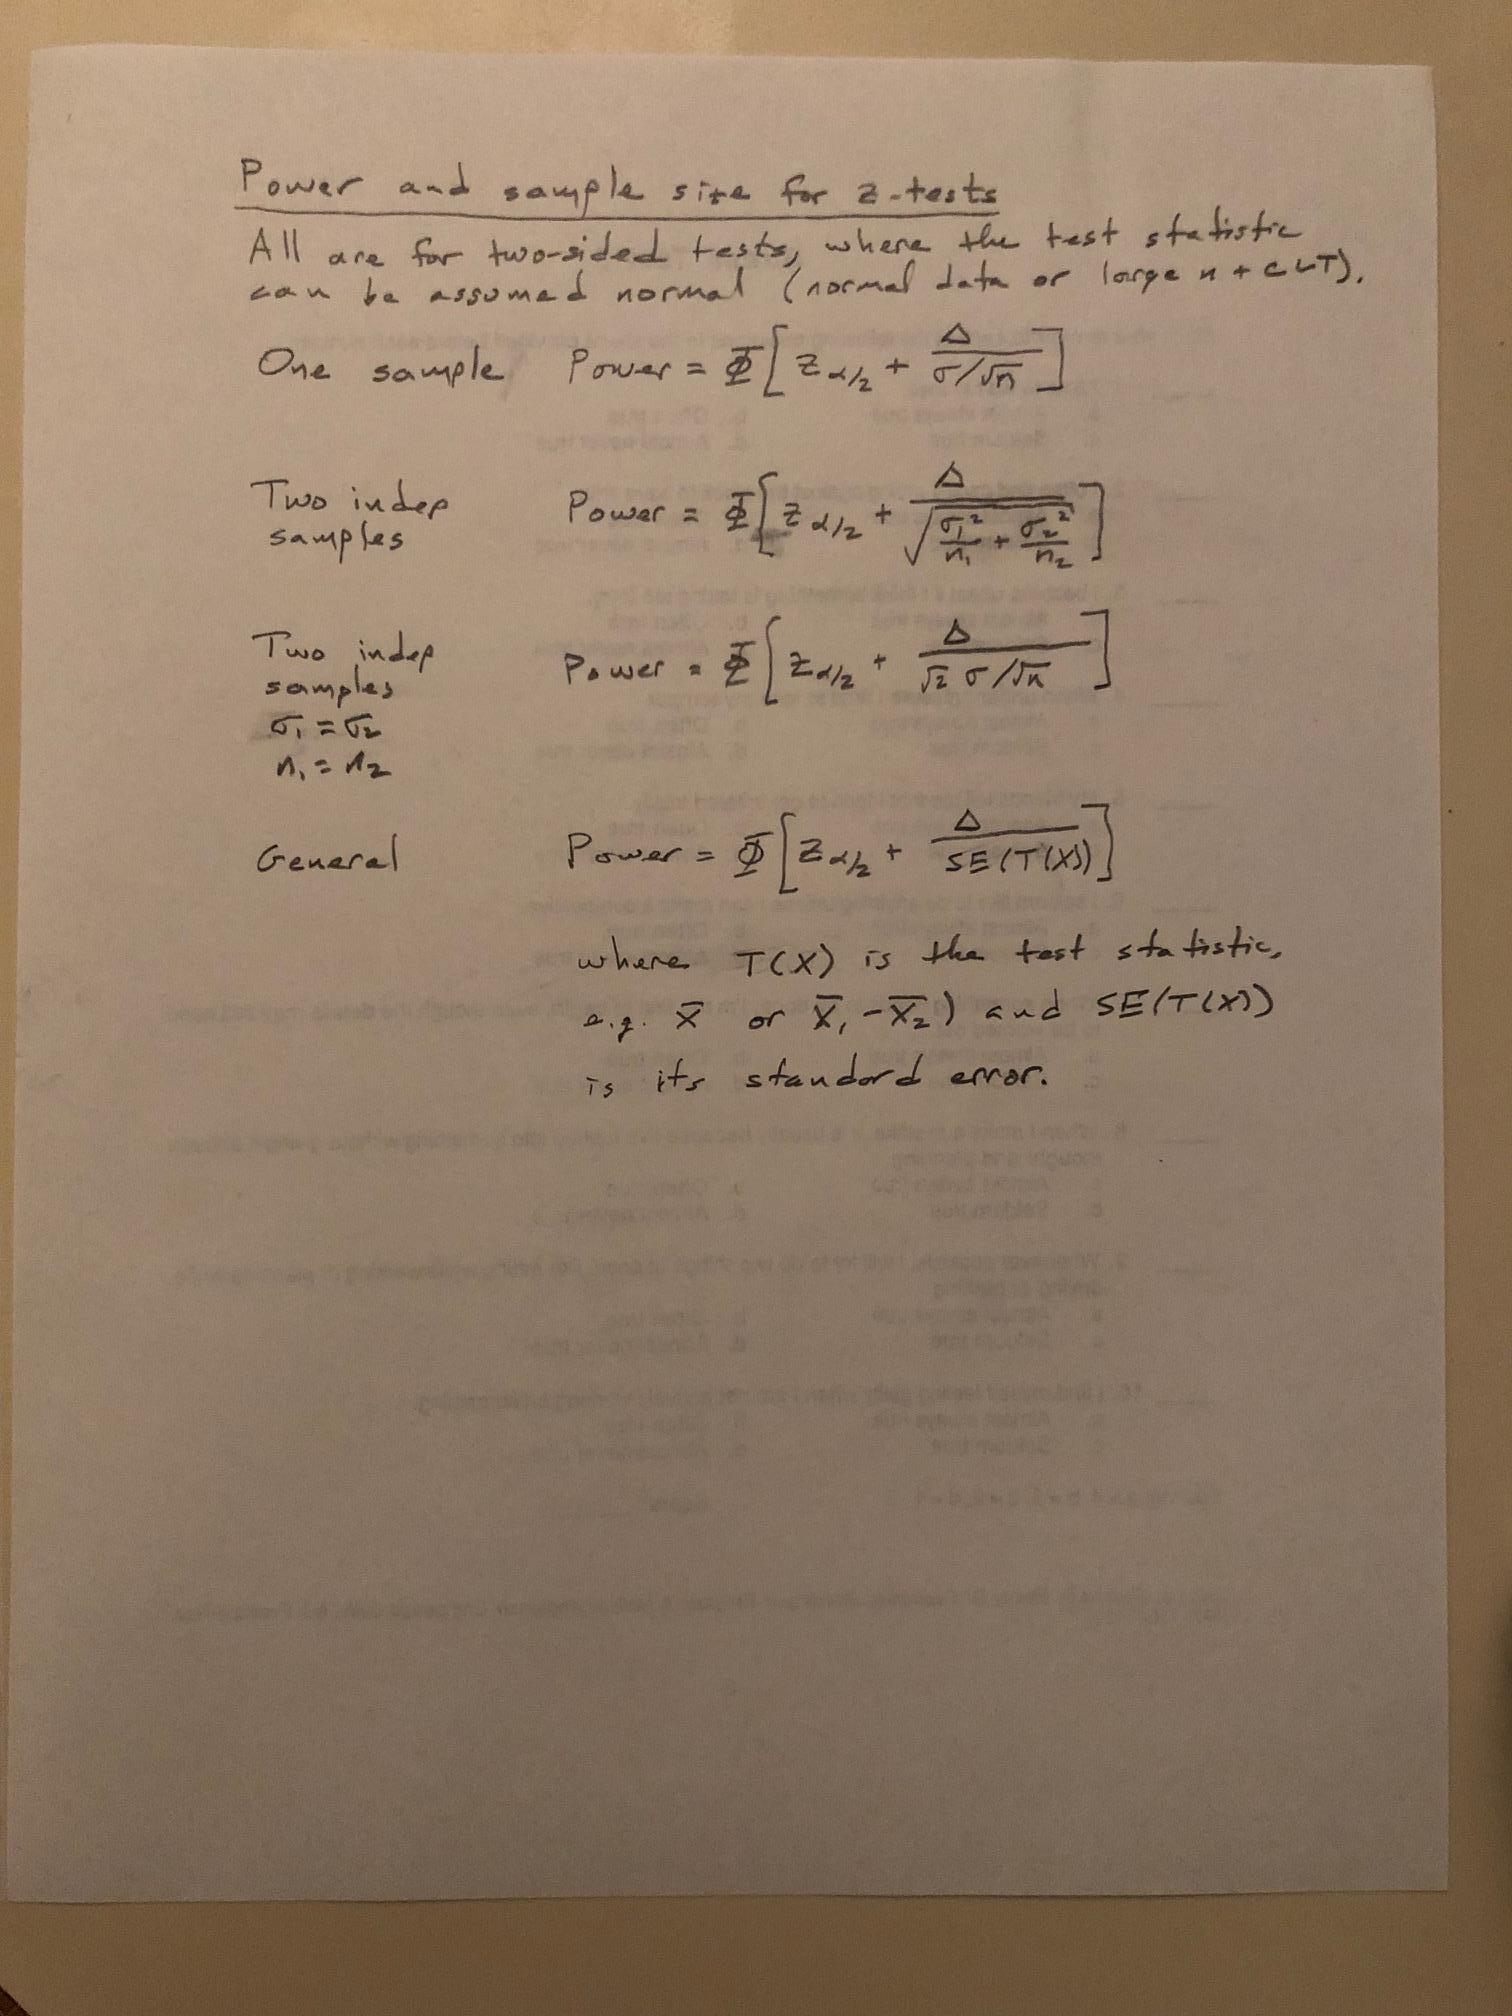 Power and sample size for z-tests
All are for two-sided tests, where the test statistic
can be assumed normal (normal data or large n + CLT).
One sample Power = Φ[z_α/2 + Δ/(σ/√n)]
Two indep samples Power = Φ[z_α/2 + Δ/√(σ₁²/n₁ + σ₂²/n₂)]
Two indep samples Power = Φ[z_α/2 + Δ/(√2 σ/√n)]
σ₁ = σ₂
n₁ = n₂
General Power = Φ[z_α/2 + Δ/SE(T(X))]
where T(X) is the test statistic,
e.g. X̄ or X̄₁ - X̄₂) and SE(T(X))
is its standard error.